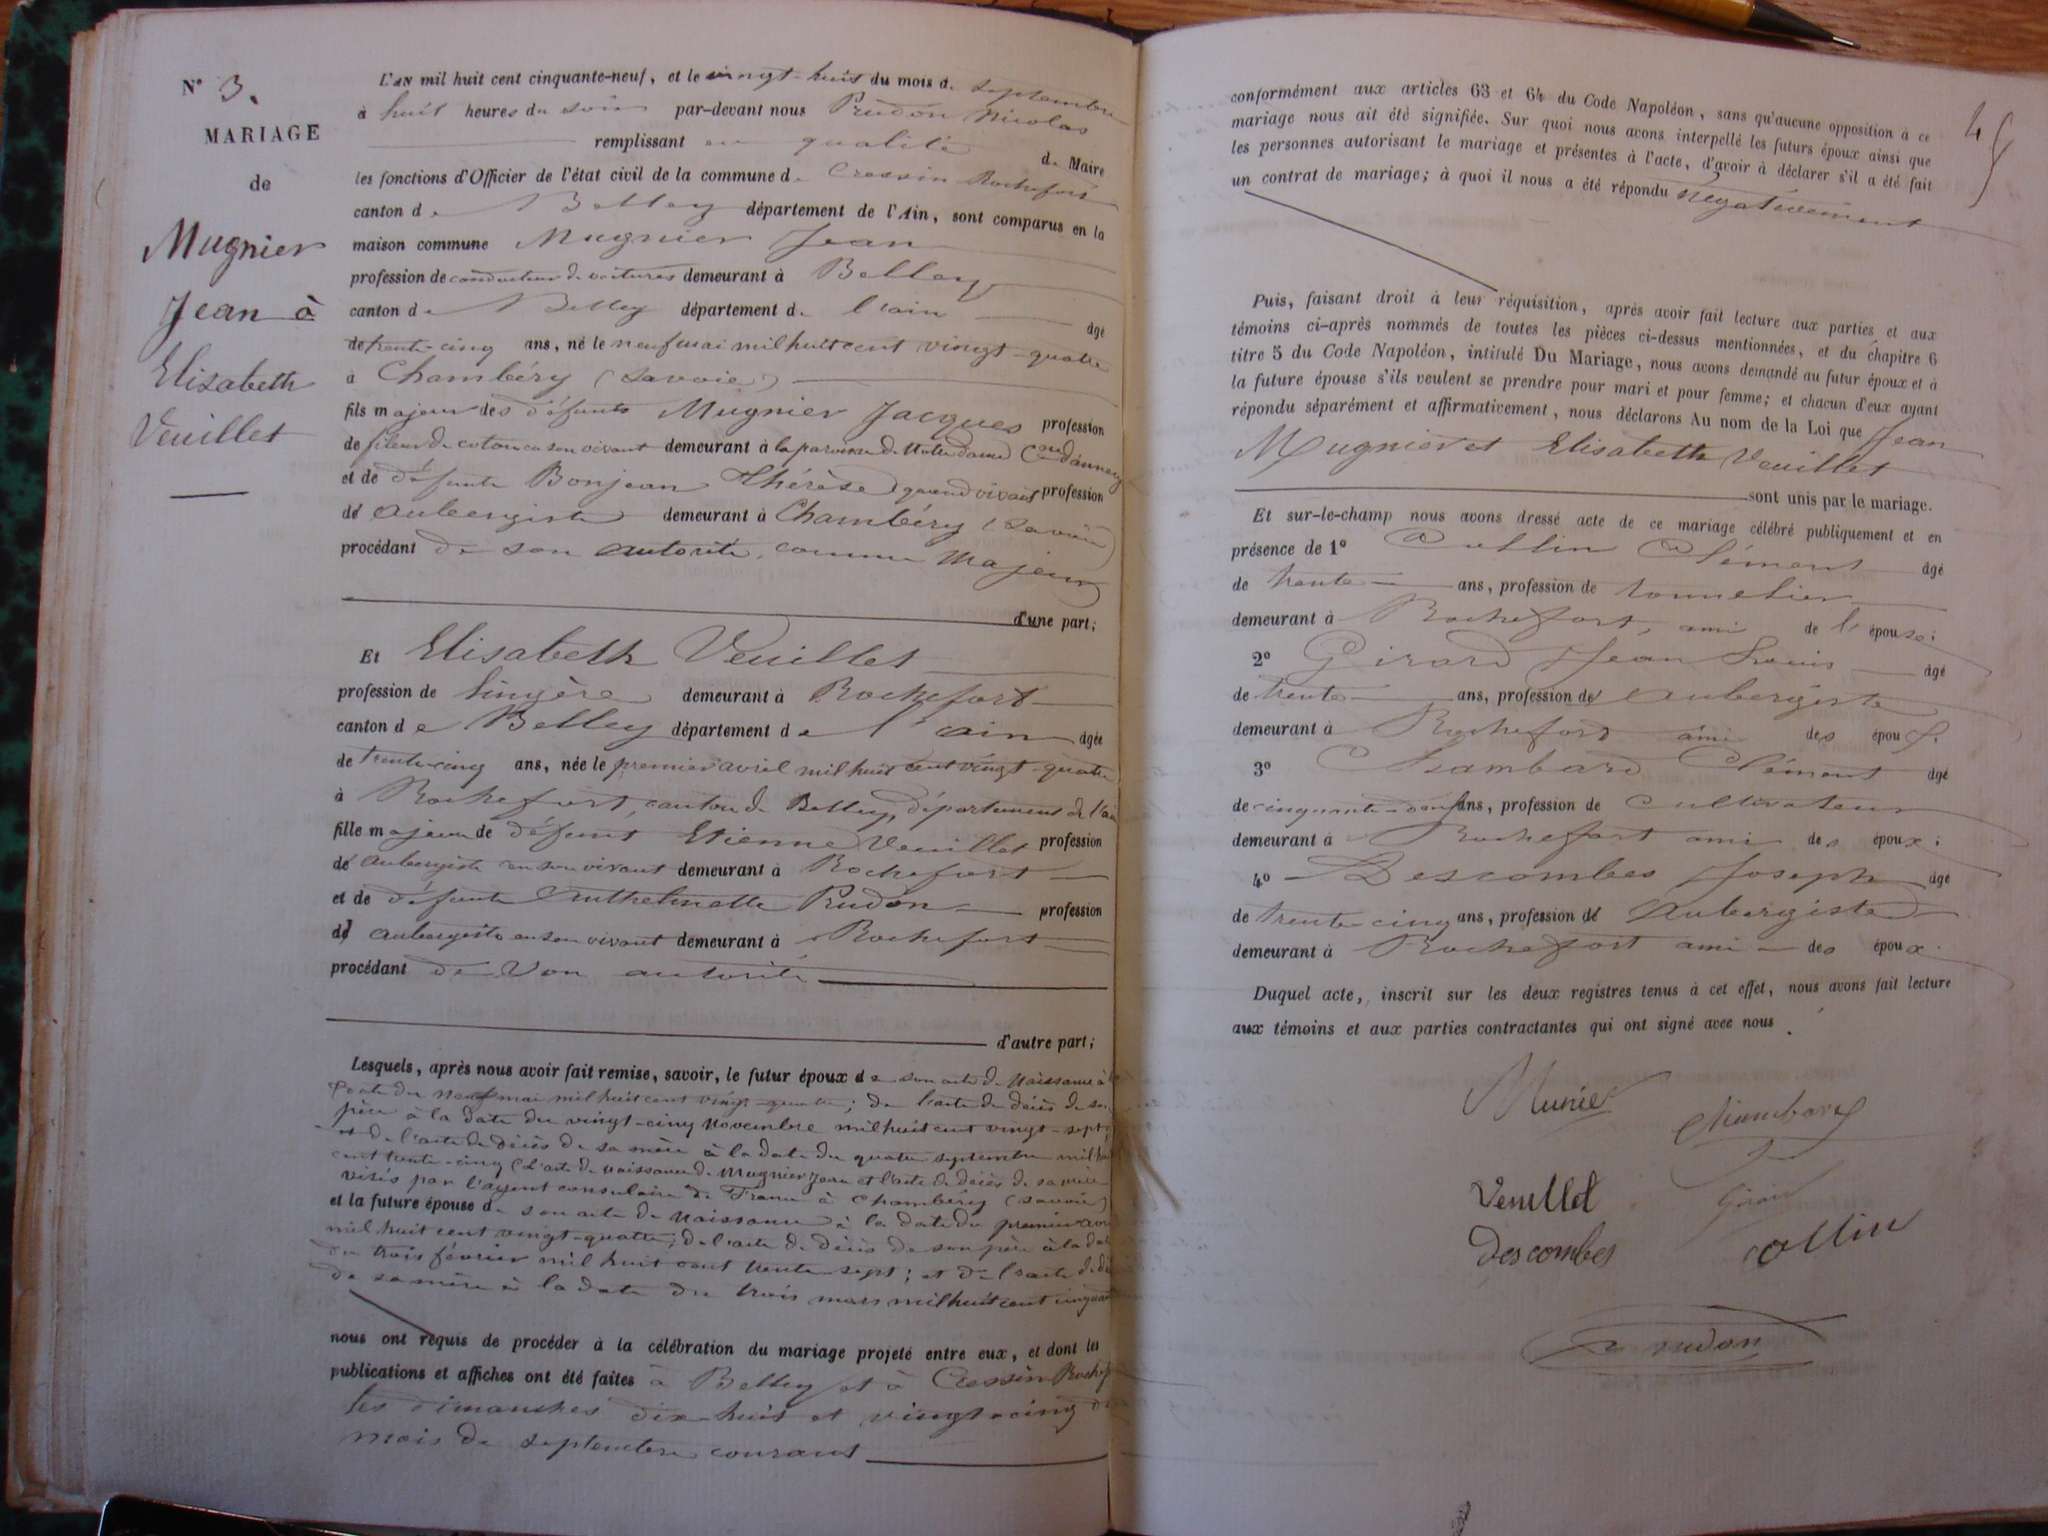 N° 3.
MARIAGE
de
Mugnier
Jean à
Elisabeth
Veuillet
L'AN mil huit cent cinquante-neuf, et le vingt-huit du mois de septembre
à huit heures du soir par-devant nous Prudon Nicolas
remplissant en qualité de Maire
les fonctions d'Officier de l'état civil de la commune de Cressin Rochefort
canton de Belley département de l'Ain, sont comparus en la
maison commune Mugnier Jean
profession de conducteur de voitures demeurant à Belley
canton de Belley département de l'ain âgé
de trente-cinq ans, né le neuf mai mil huit cent vingt-quatre
à Chambéry (Savoie)
fils majeur des défunts Mugnier Jacques profession
de fileur de coton en son vivant demeurant à la paroisse de Notre dame
et de défunte Bonjean Thérèse quand vivait profession
de aubergiste demeurant à Chambéry (Savoie)
procédant de son autorité comme Majeur
d'une part;
Et Elisabeth Veuillet
profession de lingère demeurant à Rochefort
canton de Belley département de l'ain âgée
de trente-cinq ans, née le premier avril mil huit cent vingt-quatre
à Rochefort, canton de Belley, département de l'ain
fille majeure de défunt Etienne Veuillet profession
de aubergiste en son vivant demeurant à Rochefort
et de défunte Anthelmette Prudon profession
d' aubergiste en son vivant demeurant à Rochefort
procédant de son autorité
d'autre part;
Lesquels, après nous avoir fait remise, savoir, le futur époux de son acte de Naissance à la
date du neuf mai mil huit cent vingt-quatre; de l'acte de décès de son
père à la date du vingt-cinq Novembre mil huit cent vingt-sept;
et de l'acte de décès de sa mère à la date du quatre septembre mil huit
cent trente-cinq (L'acte de naissance de Mugnier Jean et l'acte de décès de sa mère
visés par l'agent consulaire de France à Chambéry (Savoie)
et la future épouse de son acte de Naissance à la date du premier avril
mil huit cent vingt-quatre; de l'acte de décès de son père à la date
du trois février mil huit cent trente-sept; et de l'acte de décès
de sa mère à la date du trois mars mil huit cent cinquante
nous ont requis de procéder à la célébration du mariage projeté entre eux, et dont les
publications et affiches ont été faites à Belley et à Cressin Rochefort
les dimanches dix-huit et vingt-cinq du
mois de septembre courant
45
conformément aux articles 63 et 64 du Code Napoléon, sans qu'aucune opposition à ce
mariage nous ait été signifiée. Sur quoi nous avons interpellé les futurs époux ainsi que
les personnes autorisant le mariage et présentes à l'acte, d'avoir à déclarer s'il a été fait
un contrat de mariage; à quoi il nous a été répondu négativement
Puis, faisant droit à leur réquisition, après avoir fait lecture aux parties et aux
témoins ci-après nommés de toutes les pièces ci-dessus mentionnées, et du chapitre 6
titre 5 du Code Napoléon, intitulé Du Mariage, nous avons demandé au futur époux et à
la future épouse s'ils veulent se prendre pour mari et pour femme; et chacun d'eux ayant
répondu séparément et affirmativement, nous déclarons Au nom de la Loi que Jean
Mugnier et Elisabeth Veuillet
sont unis par le mariage.
Et sur-le-champ nous avons dressé acte de ce mariage célébré publiquement et en
présence de 1° Collin Clément âgé
de trente ans, profession de tonnelier
demeurant à Rochefort, ami de l'épouse;
2° Girard Jean Louis âgé
de trente ans, profession de aubergiste
demeurant à Rochefort ami des époux.
3° Chambard Clément âgé
de cinquante-deux ans, profession de cultivateur
demeurant à Rochefort ami des époux;
4° Descombes Joseph âgé
de trente-cinq ans, profession de aubergiste
demeurant à Rochefort ami des époux.
Duquel acte, inscrit sur les deux registres tenus à cet effet, nous avons fait lecture
aux témoins et aux parties contractantes qui ont signé avec nous.
Munier
Chambard
Veuillet
Girard
Descombes
Collin
Prudon